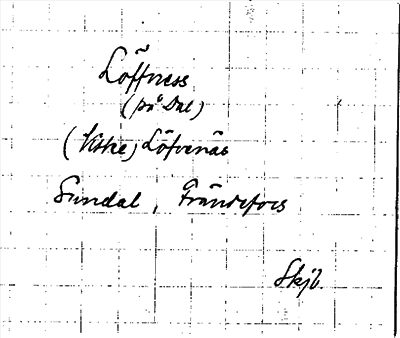 Löffness
(på Dal)
Löfvenäs
Sundal, Frändefors
Skjb.